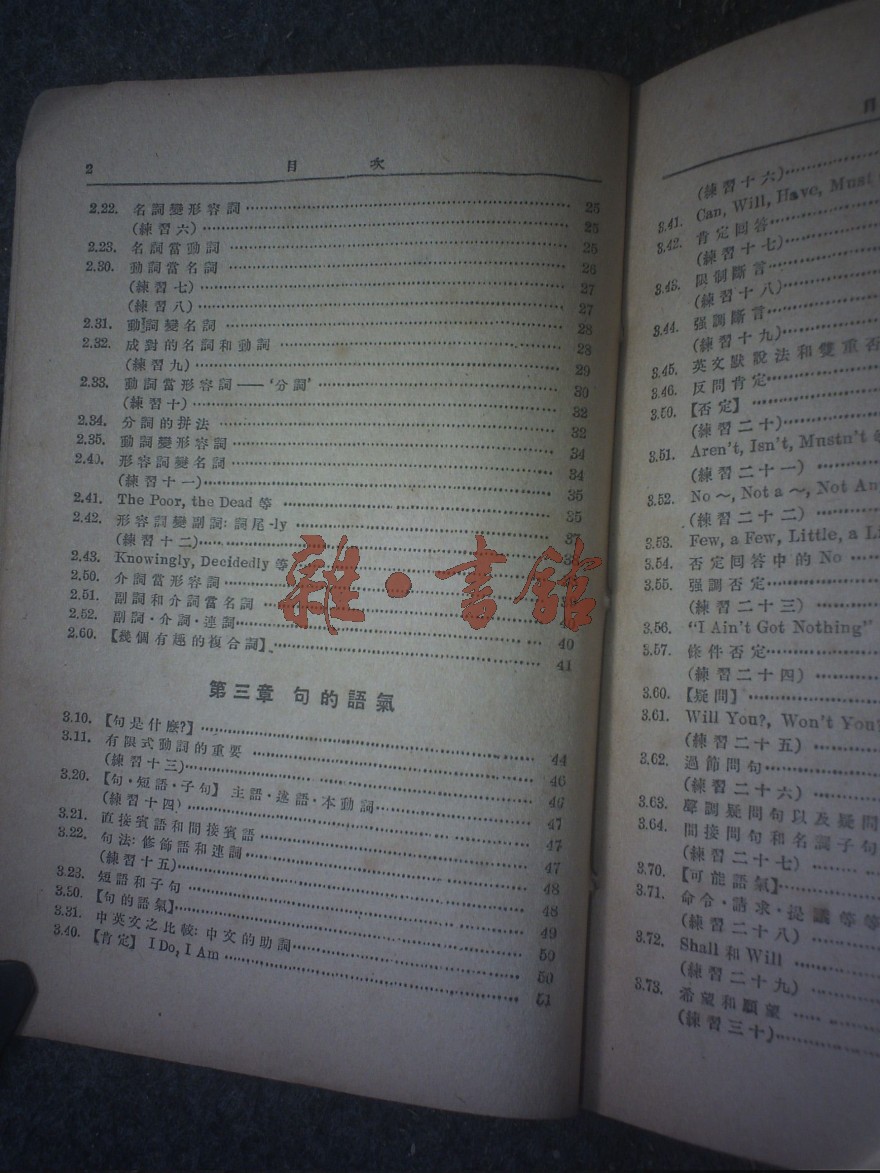 2 目 次
2.22. 名詞變形容詞 25
(練習六) 25
2.23. 名詞當動詞 25
2.30. 動詞當名詞 26
(練習七) 27
(練習八) 27
2.31. 動詞變名詞 28
2.32. 成對的名詞和動詞 28
(練習九) 29
2.33. 動詞當形容詞——‘分詞’ 30
(練習十) 32
2.34. 分詞的拼法 32
2.35. 動詞變形容詞 34
2.40. 形容詞變名詞 34
(練習十一) 35
2.41. The Poor, the Dead 等 35
2.42. 形容詞變副詞: 詞尾 -ly 37
(練習十二)
2.43. Knowingly, Decidedly 等
2.50. 介詞當形容詞
2.51. 副詞和介詞當名詞
2.52. 副詞·介詞·連詞 40
2.60. 【幾個有趣的複合詞】 41
雜·書館
第三章 句的語氣
3.10. 【句是什麼?】 44
3.11. 有限式動詞的重要 46
(練習十三) 46
3.20. 【句·短語·子句】 主語·述語·本動詞 47
(練習十四) 47
3.21. 直接賓語和間接賓語 47
3.22. 句法: 修飾語和連詞 48
(練習十五) 48
3.23. 短語和子句 49
3.30. 【句的語氣】 50
3.31. 中英文之比較: 中文的助詞 50
3.40. 【肯定】 I Do, I Am 51
目
(練習十六)
3.41. Can, Will, Have, Must
3.42. 肯定回答
(練習十七)
3.43. 限制斷言
(練習十八)
3.44. 强調斷言
(練習十九)
3.45. 英文默說法和雙重否
3.46. 反問肯定
3.50. 【否定】
(練習二十)
3.51. Aren't, Isn't, Mustn't 等
(練習二十一)
3.52. No ~, Not a ~, Not An
(練習二十二)
3.53. Few, a Few, Little, a Li
3.54. 否定回答中的 No
3.55. 强調否定
(練習二十三)
3.56. "I Ain't Got Nothing"
3.57. 條件否定
(練習二十四)
3.60. 【疑問】
3.61. Will You?, Won't You?
(練習二十五)
3.62. 過節問句
(練習二十六)
3.63. 聲調疑問句以及疑問
3.64. 間接問句和名詞子句
(練習二十七)
3.70. 【可能語氣】
3.71. 命令·請求·提議等等
(練習二十八)
3.72. Shall 和 Will
(練習二十九)
3.73. 希望和願望
(練習三十)